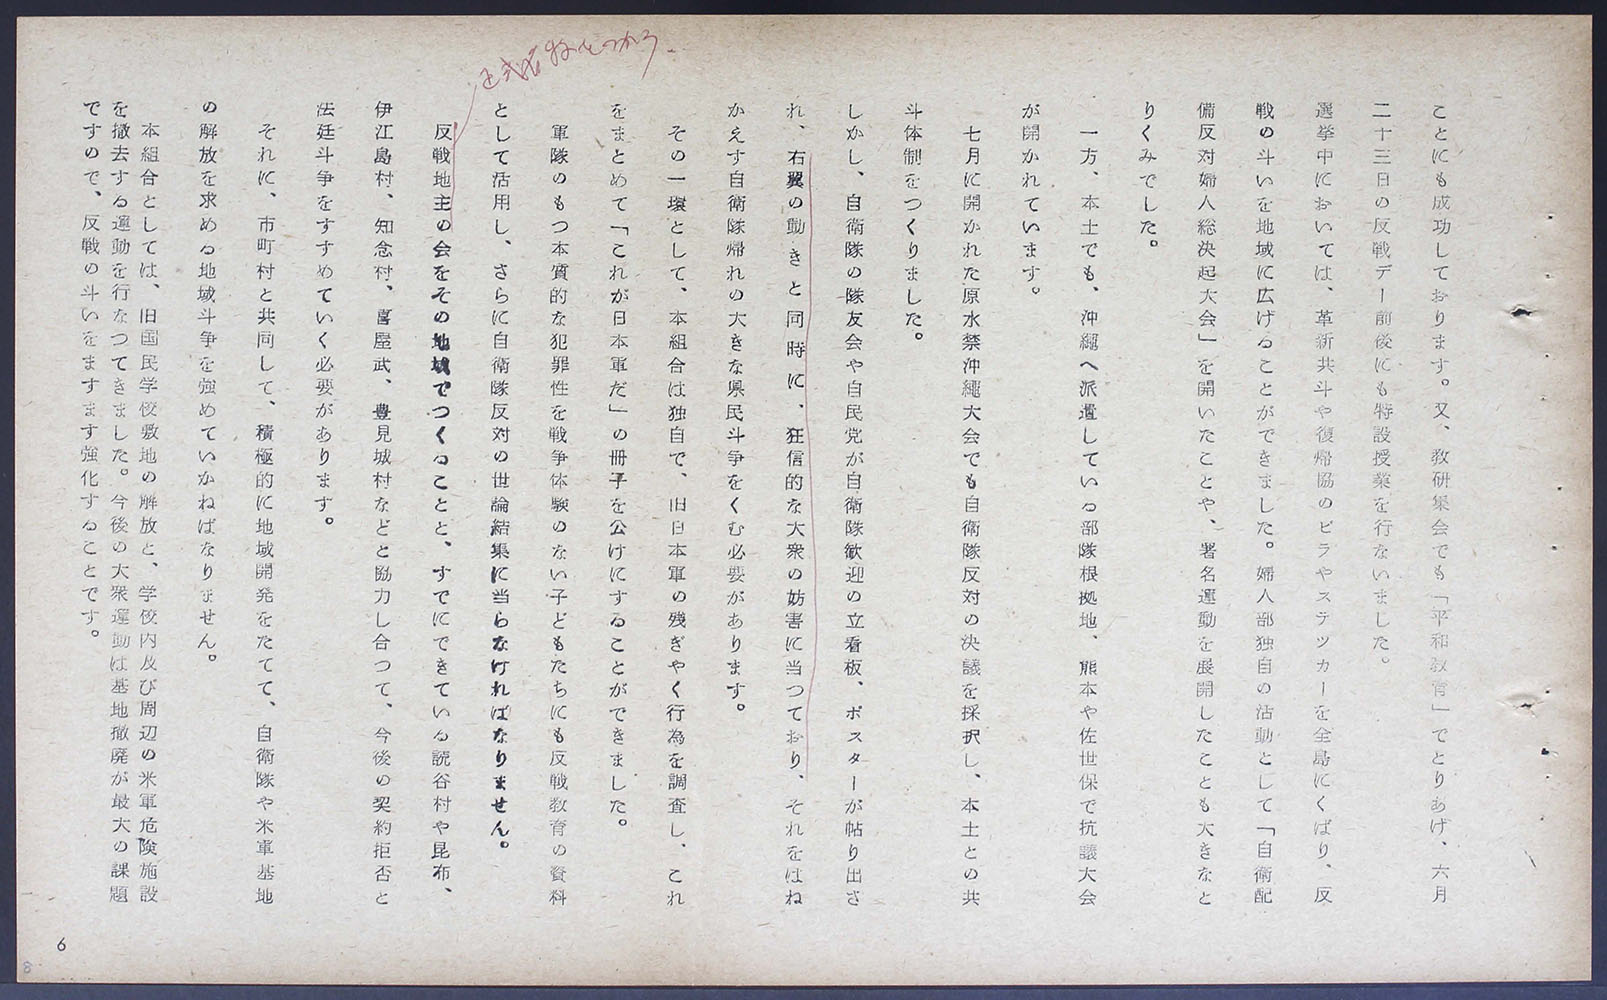 ことにも成功しております。又、教研集会でも「平和教育」でとりあげ、六月
二十三日の反戦デー前後にも特設授業を行ないました。
選挙中においては、革新共斗や復帰協のビラやステツカーを全島にくばり、反
戦の斗いを地域に広げることができました。婦人部独自の活動として「自衛配
備反対婦人総決起大会」を開いたことや、署名運動を展開したことも大きなと
りくみでした。
一方、本土でも、沖縄へ派遣している部隊根拠地、熊本や佐世保で抗議大会
が開かれています。
七月に開かれた原水禁沖縄大会でも自衛隊反対の決議を採択し、本土との共
斗体制をつくりました。
しかし、自衛隊の隊友会や自民党が自衛隊歓迎の立看板、ポスターが帖り出さ
れ、右翼の動きと同時に、狂信的な大衆の妨害に当つており、それをはね
かえす自衛隊帰れの大きな県民斗争をくむ必要があります。
その一環として、本組合は独自で、旧日本軍の残ぎやく行為を調査し、これ
をまとめて「これが日本軍だ」の冊子を公けにすることができました。
軍隊のもつ本質的な犯罪性を戦争体験のない子どもたちにも反戦教育の資料
として活用し、さらに自衛隊反対の世論結集に当らなければなりません。
反戦地主の会をその地域でつくることと、すでにできている読谷村や昆布、
伊江島村、知念村、喜屋武、豊見城村などと協力し合つて、今後の契約拒否と
法廷斗争をすすめていく必要があります。
それに、市町村と共同して、積極的に地域開発をたてて、自衛隊や米軍基地
の解放を求める地域斗争を強めていかねばなりません。
本組合としては、旧国民学校敷地の解放と、学校内及び周辺の米軍危険施設
を撤去する運動を行なつてきました。今後の大衆運動は基地撤廃が最大の課題
ですので、反戦の斗いをますます強化することです。
6
8